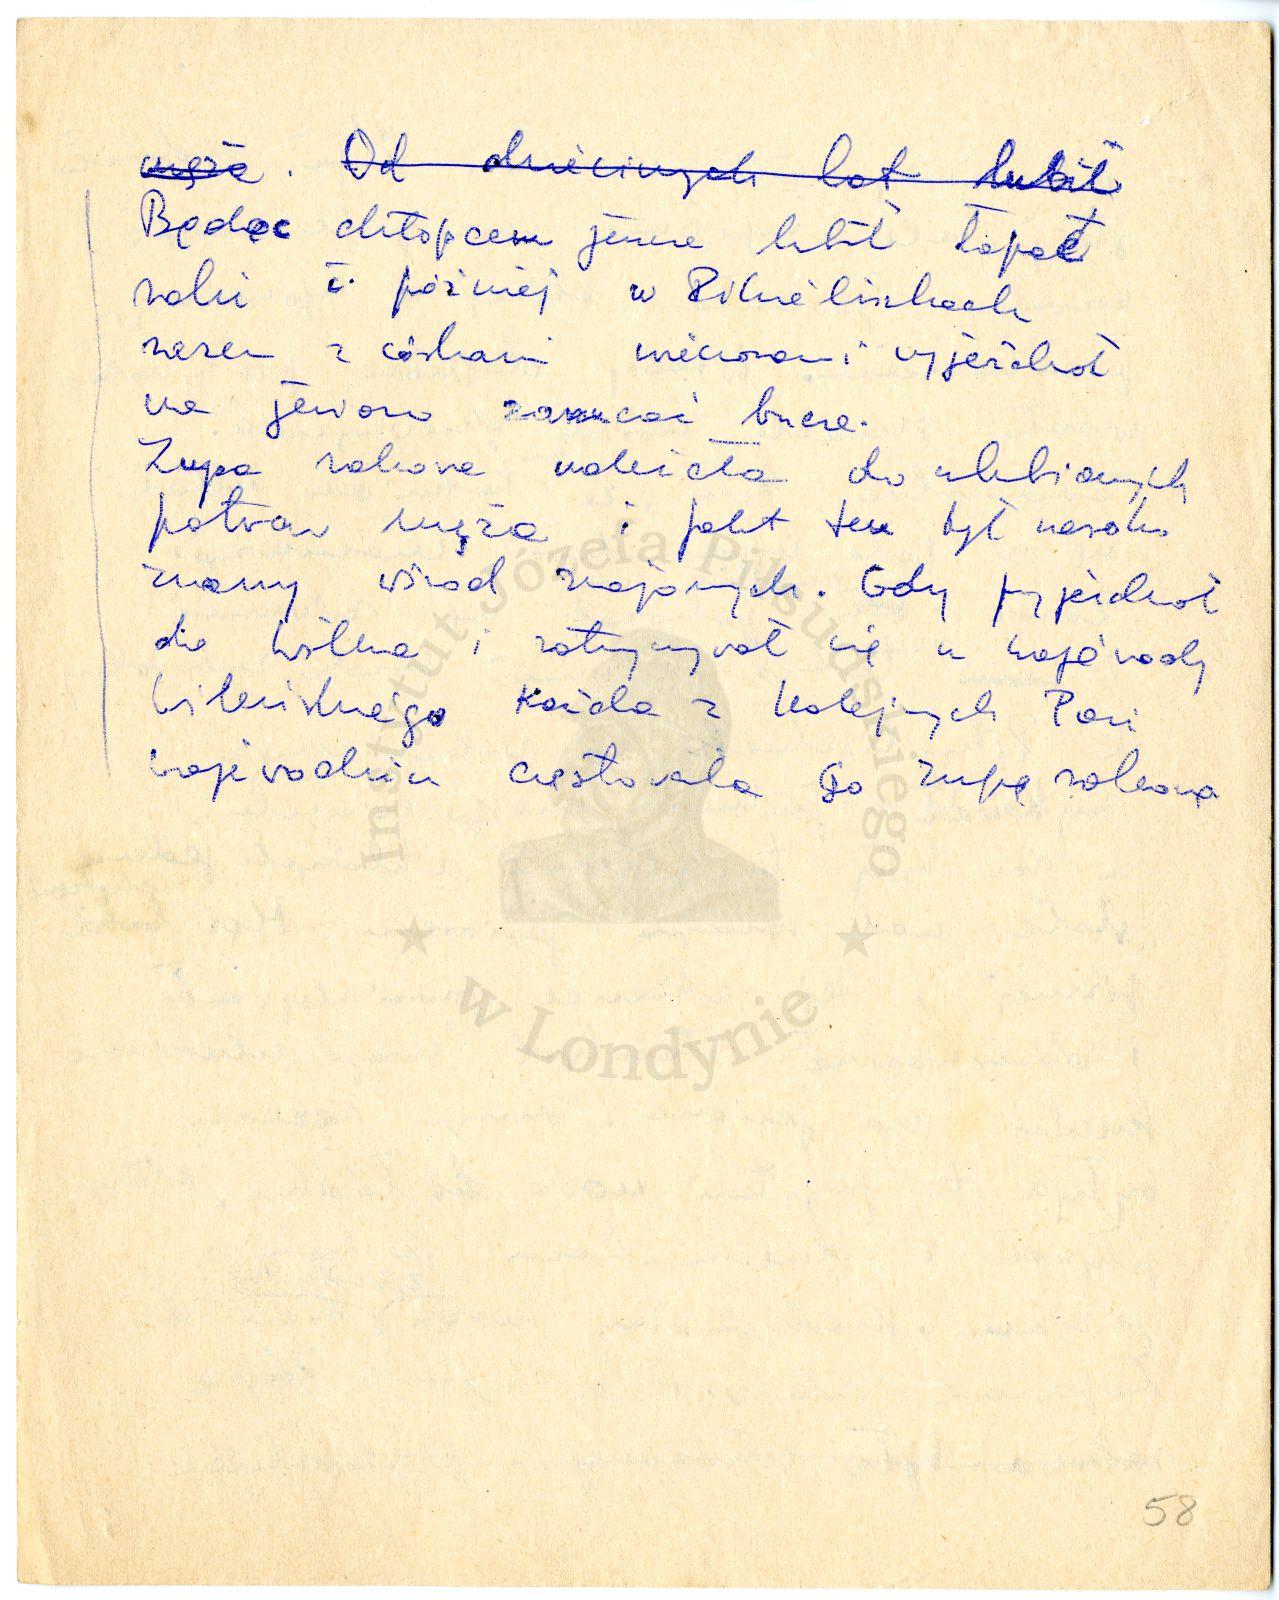 męża. Od dziecinnych lat lubił
Będąc chłopcem jeszcze lubił łapać
raki i później w Pikieliszkach
razem z córkami wieczorami wyjeżdżał
na jezioro zarzucać bucze.
Zupa rakowa należała do ulubionych
potraw męża i fakt ten był szeroko
znany wśród znajomych. Gdy przyjeżdżał
do Wilna i zatrzymywał się u wojewody
wileńskiego każda z kolejnych Pań
wojewodzin częstowała go zupą rakową
Instytut Józefa Piłsudskiego
w Londynie
58